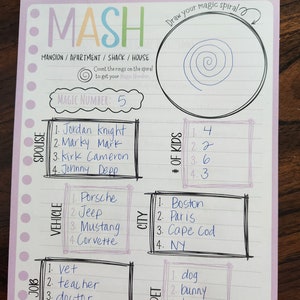 MASH
Draw your magic spiral
MANSION / APARTMENT / SHACK / HOUSE
Count the rings on the spiral
to get your Magic Number
MAGIC NUMBER: 5
SPOUSE
1. Jordan Knight
2. Marky Mark
3. Kirk Cameron
4. Johnny Depp
# OF KIDS
1. 4
2. 2
3. 6
4. 3
VEHICLE
1. Porsche
2. Jeep
3. Mustang
4. Corvette
CITY
1. Boston
2. Paris
3. Cape Cod
4. NY
JOB
1. vet
2. teacher
3. doctor
PET
1. dog
2. bunny